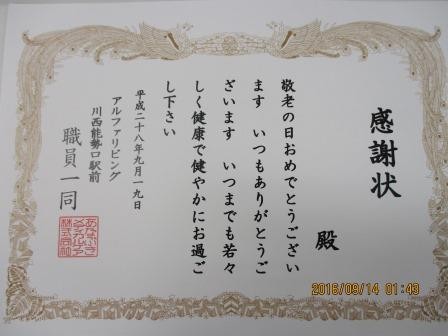 感謝状
殿
敬老の日おめでとうござい
ます　いつもありがとうご
ざいます　いつまでも若々
しく健康で健やかにお過ご
し下さい
平成二十八年九月一九日
アルファリビング
川西能勢口駅前
職員一同
あなぶき
メディカルケア
株式会社
2016/09/14 01:49